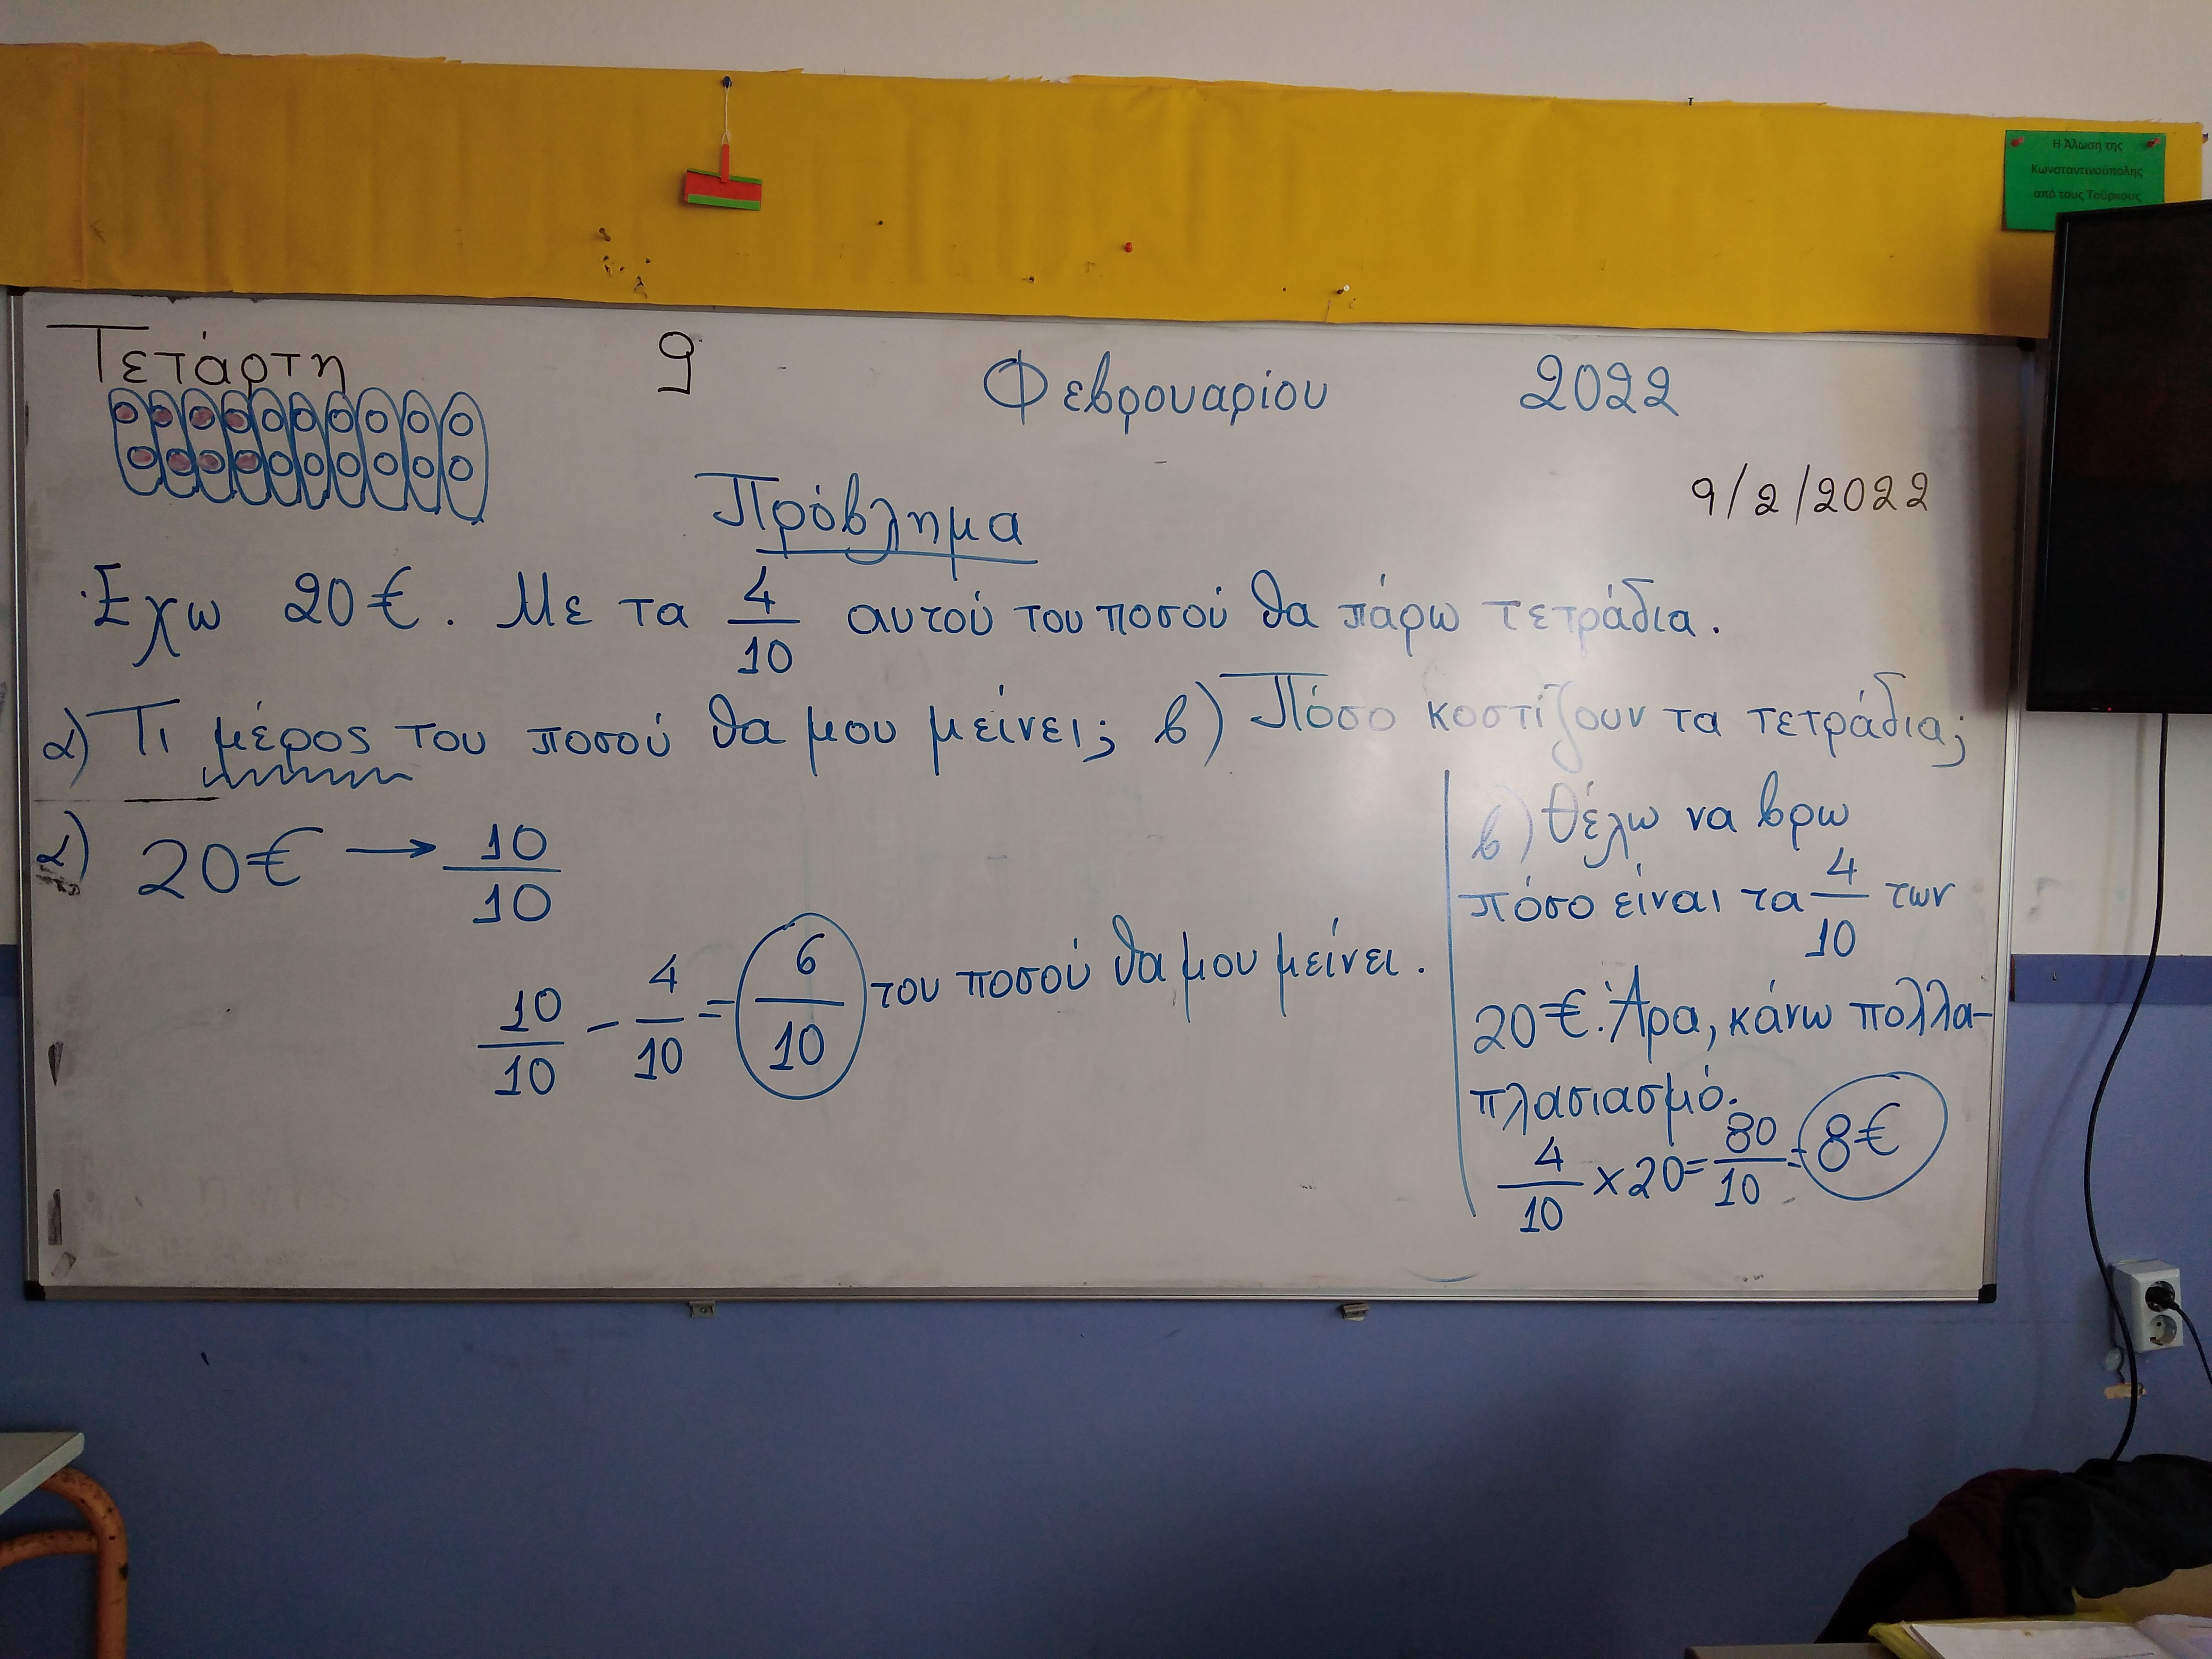 Η Άλωση της
Κωνσταντινούπολης
από τους Τούρκους
Τετάρτη 9 Φεβρουαρίου 2022
9/2/2022
Πρόβλημα
Έχω 20€. Με τα 4/10 αυτού του ποσού θα πάρω τετράδια.
α) Τι μέρος του ποσού θα μου μείνει; β) Πόσο κοστίζουν τα τετράδια;
α) 20€ → 10/10
10/10 - 4/10 = 6/10 του ποσού θα μου μείνει.
β) Θέλω να βρω
πόσο είναι τα 4/10 των
20€. Άρα, κάνω πολλα-
πλασιασμό.
4/10 x 20 = 80/10 = 8€